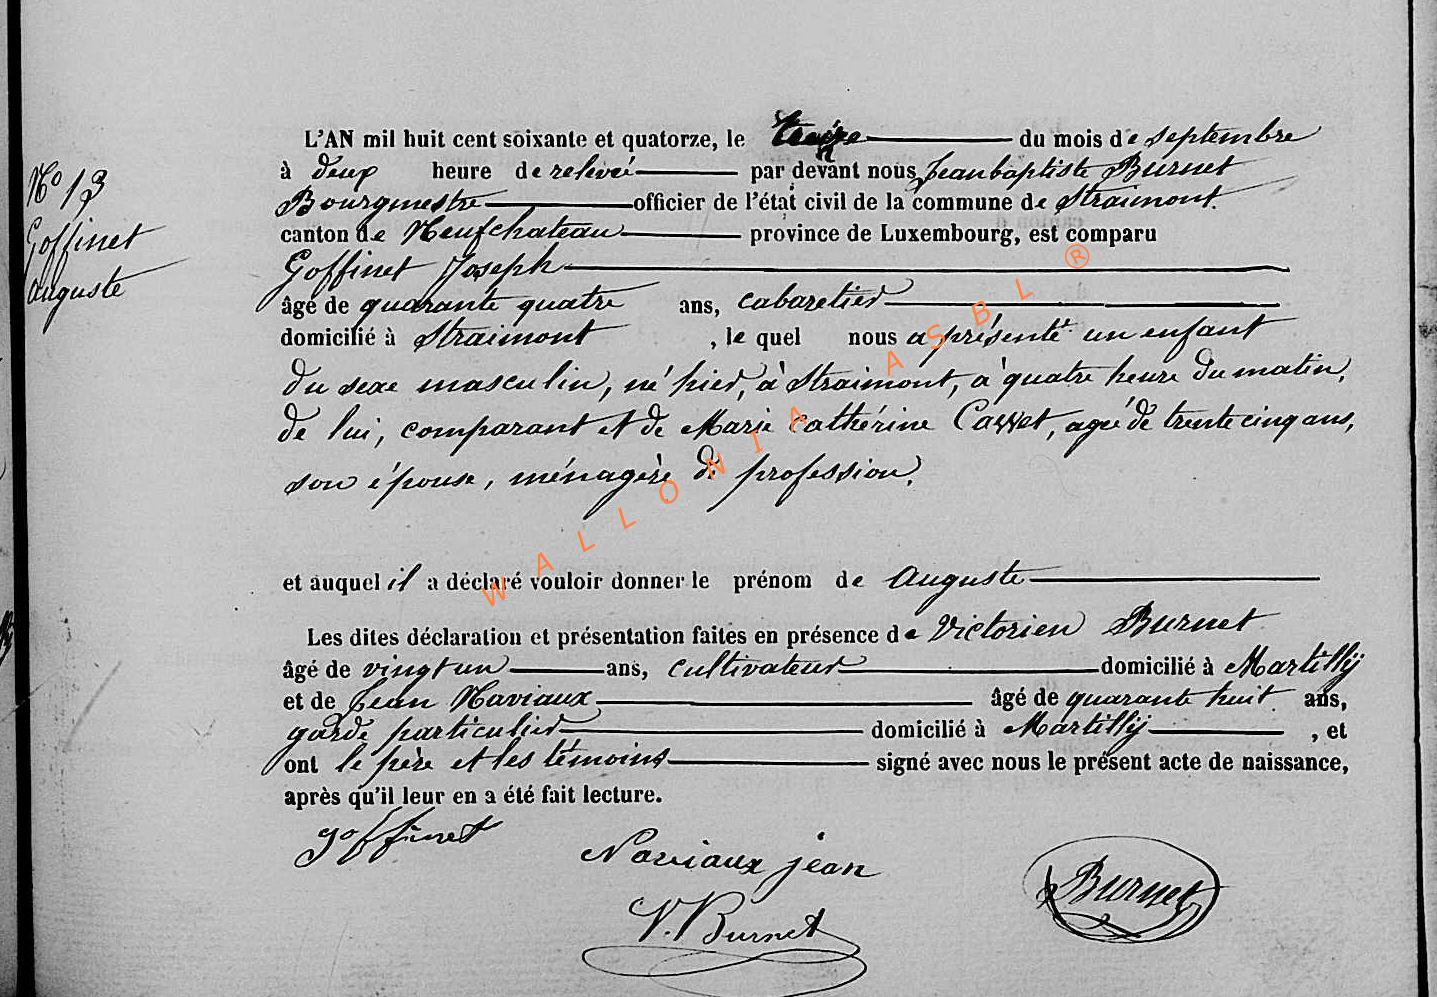 L'AN mil huit cent soixante et quatorze, le treize du mois de septembre
à deux heure de relevée par devant nous Jean baptiste Burnet
Bourgmestre officier de l'état civil de la commune de Straimont.
canton de Neufchateau province de Luxembourg, est comparu
Goffinet Joseph
âgé de quarante quatre ans, cabaretier
domicilié à Straimont, le quel nous a présenté un enfant
du sexe masculin, né hier, à Straimont, à quatre heure du matin,
de lui, comparant et de Marie Cathérine Casset, agée de trente cinq ans,
son épouse, ménagère de profession.
et auquel il a déclaré vouloir donner le prénom de Auguste
Les dites déclaration et présentation faites en présence de Victorien Burnet
âgé de vingt un ans, cultivateur domicilié à Martilly
et de Jean Naviaux âgé de quarante huit ans,
garde particulier domicilié à Martilly, et
ont le père et les témoins signé avec nous le présent acte de naissance,
après qu'il leur en a été fait lecture.
goffinet
Naviaux jean
V. Burnet
Burnet
N° 13
Goffinet
Auguste
WALLONIA ASBL ®